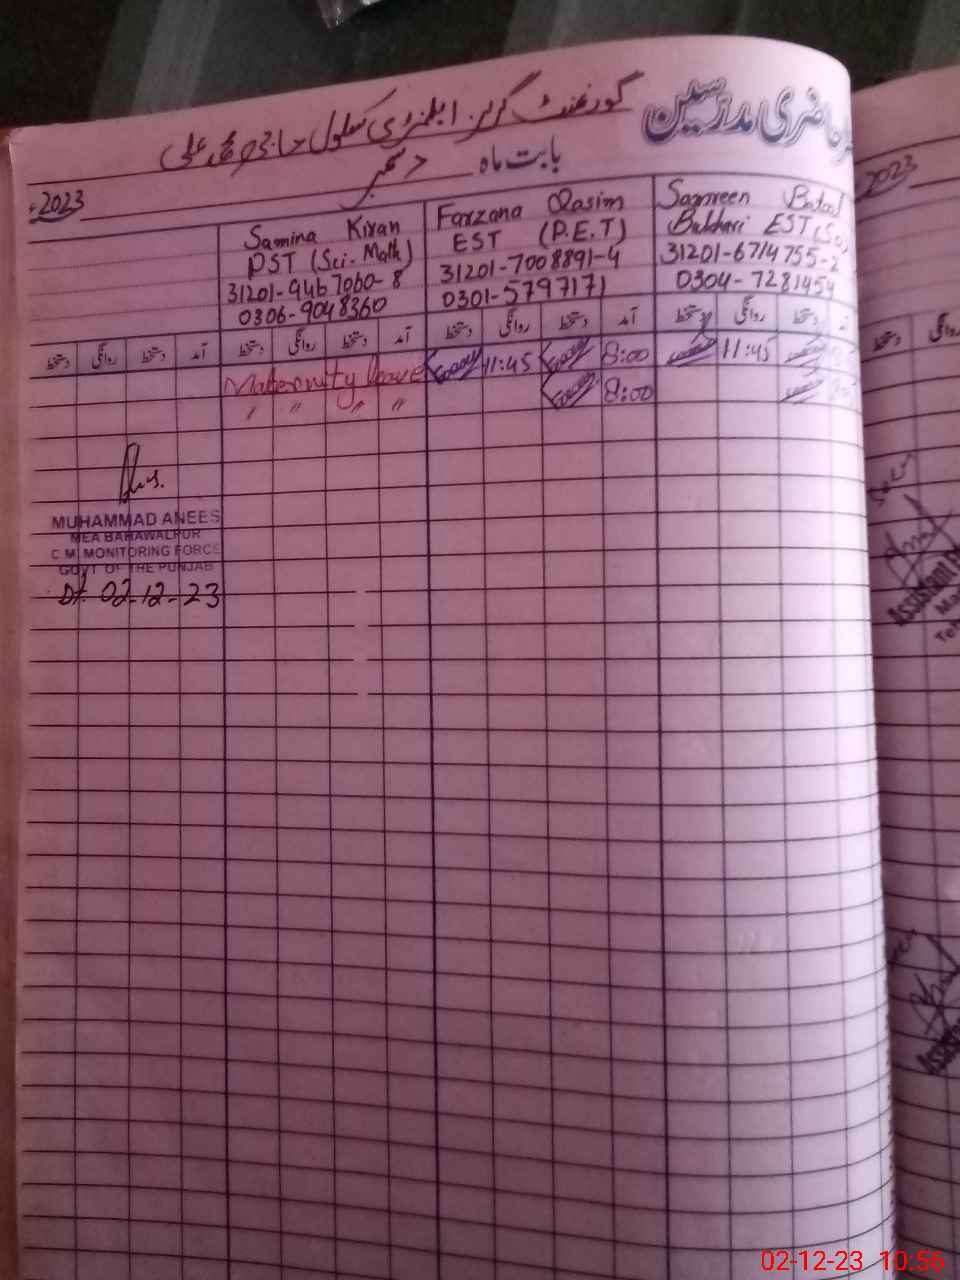 حاضری مدرسین
گورنمنٹ گرلز ایلمنٹری سکول حاجی محمد علی
بابت ماہ دسمبر
2023
2023
Samina Kiran
PST (Sci-Math)
31201-9467060-8
0306-9048360
Farzana Qasim
EST (P.E.T)
31201-7008891-4
0301-5797171
Samreen Batool
Bukhari EST (Sci)
31201-6714755-2
0304-7281454
دستخط روانگی دستخط آمد دستخط روانگی دستخط آمد دستخط روانگی دستخط آمد دستخط روانگی دستخط آمد
دستخط روانگی
Maternity leave 11:45 8:00 11:45
〃 〃 〃 〃 8:00
MUHAMMAD ANEES
MEA BAHAWALPUR
C.M. MONITORING FORCE
GOVT OF THE PUNJAB
Dt. 02-12-23
Assistant
02-12-23 10:56